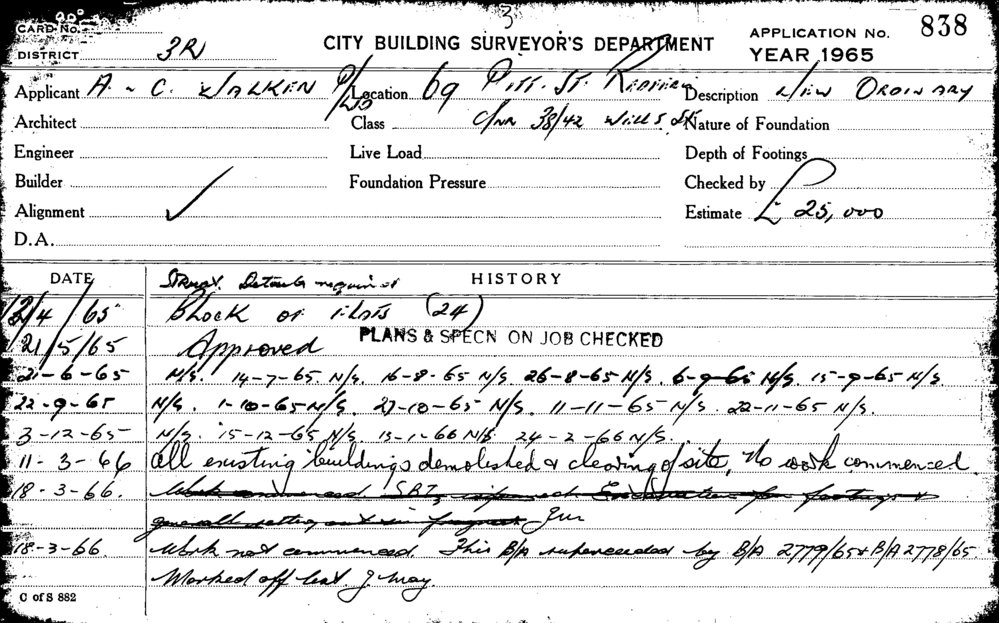 3
CARD No.
CITY BUILDING SURVEYOR'S DEPARTMENT
APPLICATION No. 838
DISTRICT 3R
YEAR 1965
Applicant A. C. WALKEN P/L Location 69 PITT. ST. REDFERN Description NEW ORDINARY
Architect
Class CNR 38/42 WELLS ST Nature of Foundation
Engineer
Live Load
Depth of Footings
Builder
Foundation Pressure
Checked by
Alignment ✓
Estimate £ 25,000
D.A.
DATE
HISTORY
Struct. Details required
12/4/65 Block of flats (24)
21/5/65 Approved PLANS & SPECN ON JOB CHECKED
21-6-65 N/S. 14-7-65. N/S. 16-8-65 N/S 26-8-65 N/S. 6-9-65 N/S. 15-9-65 N/S.
22-9-65 N/S. 1-10-65 N/S. 27-10-65 N/S. 11-11-65 N/S. 22-11-65 N/S.
3-12-65 N/S. 15-12-65 N/S. 13-1-66 N/S 24-2-66 N/S.
11-3-66 All existing buildings demolished & clearing of site, No work commenced.
18-3-66. Work commenced SBI, Excavation for footings &
generall setting out in progress
18-3-66. Work not commenced This B/A superceeded by B/A 2779/65 & B/A 2778/65
Marked off list. J. May.
C of S 882